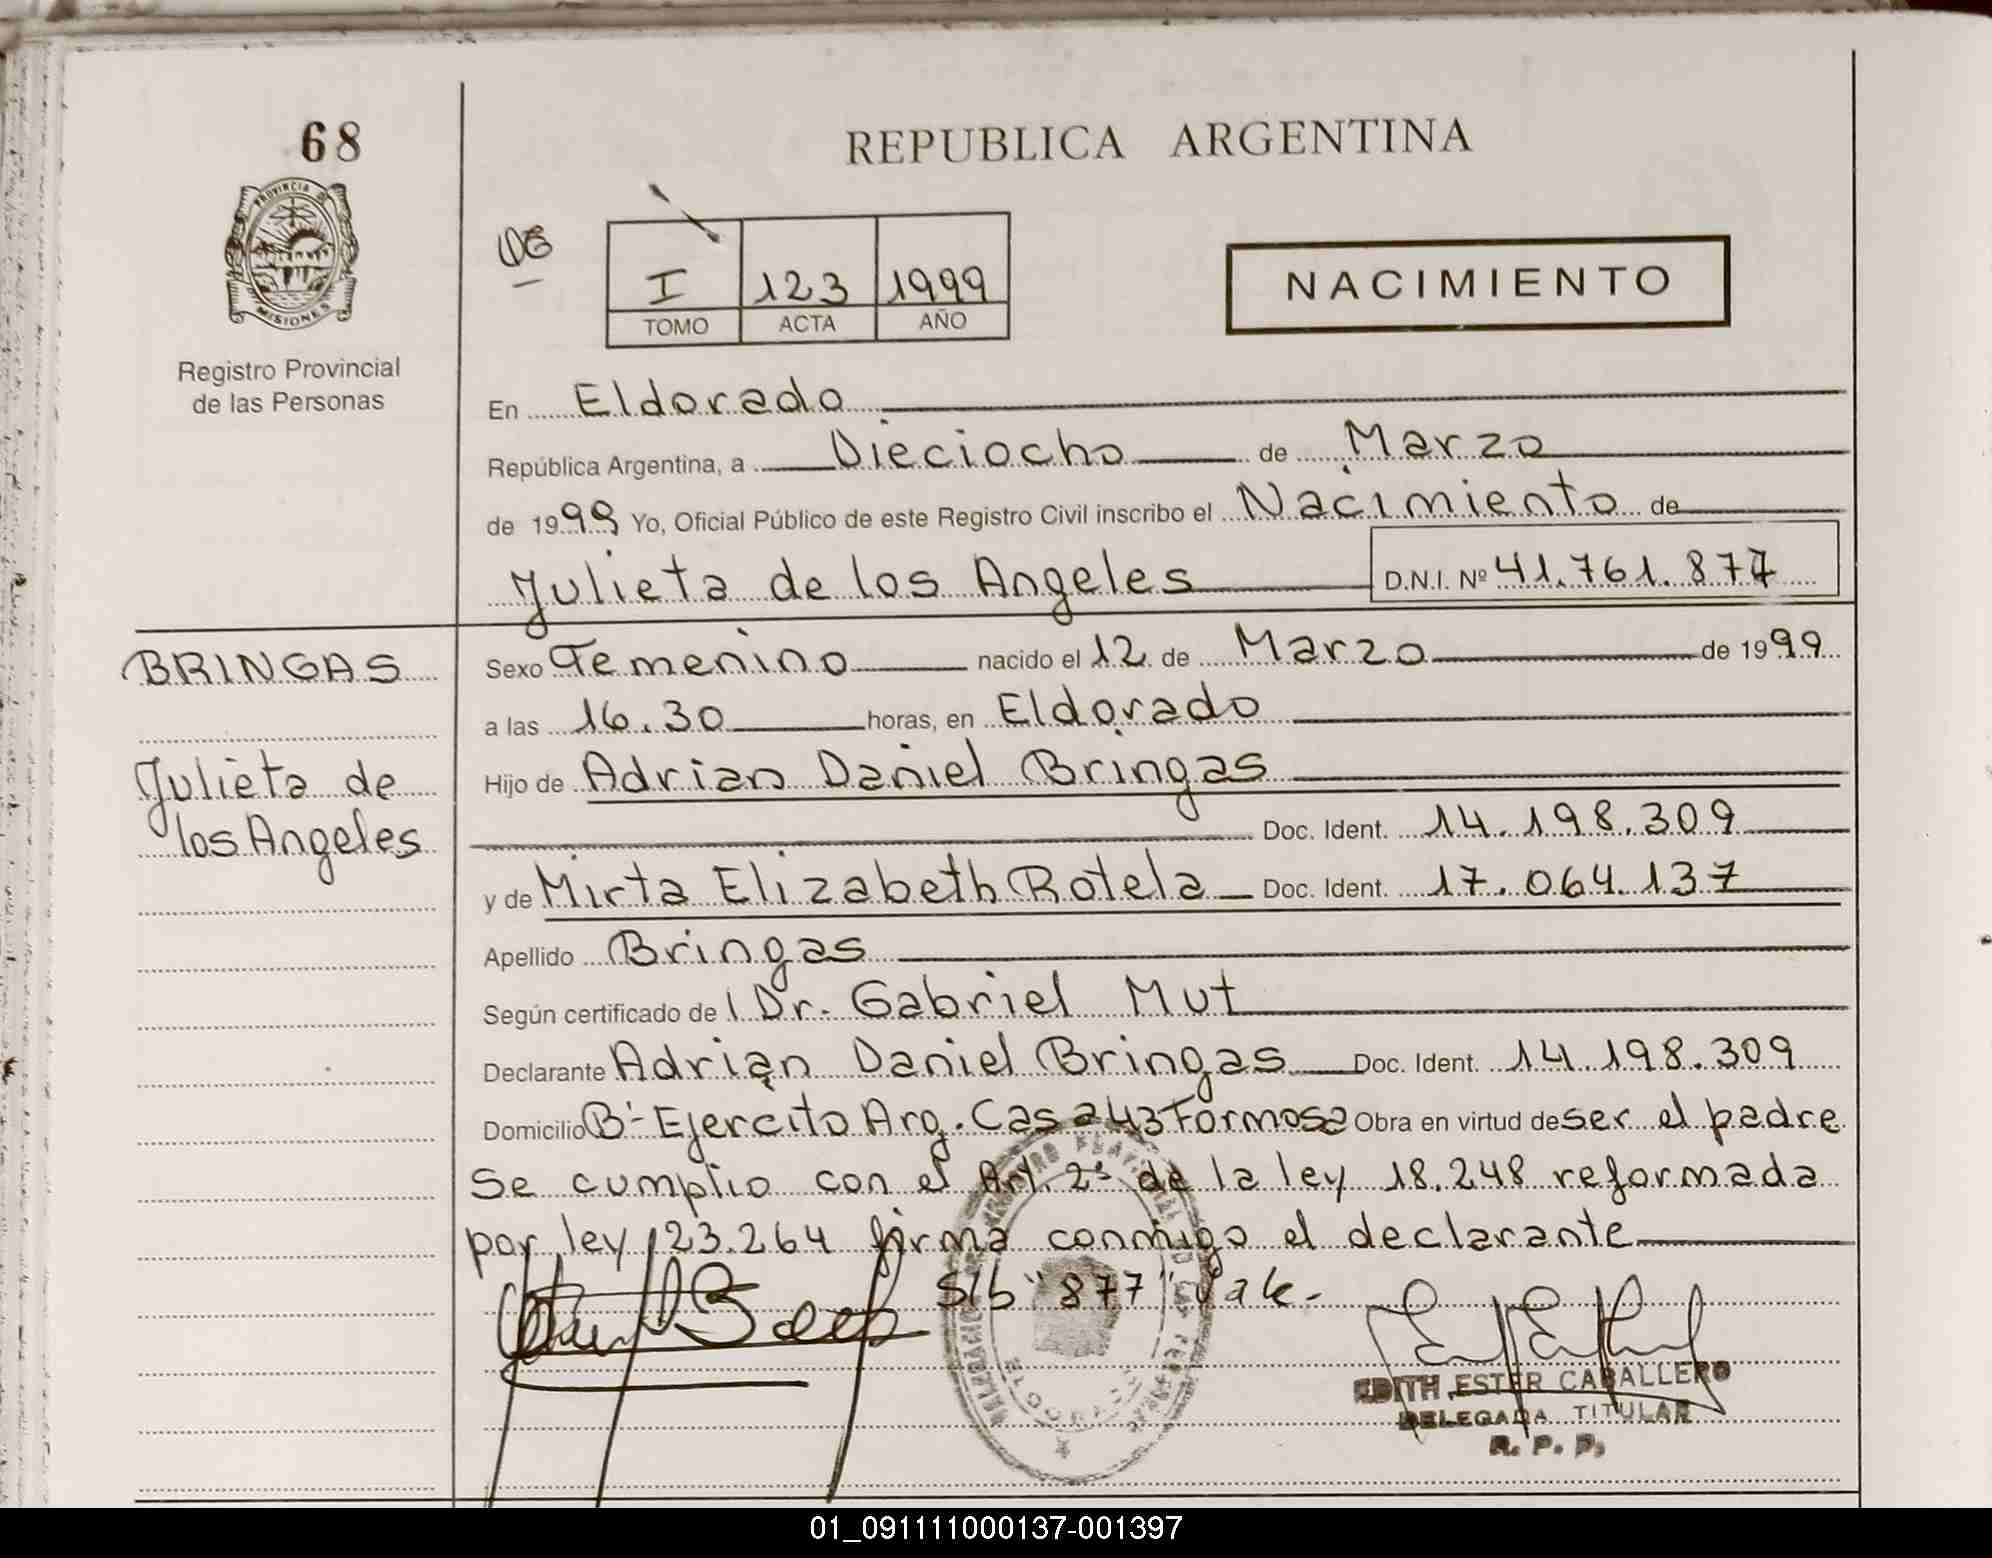 68
PROVINCIA DE
MISIONES
Registro Provincial
de las Personas
REPUBLICA ARGENTINA
I 123 1999
TOMO ACTA AÑO
NACIMIENTO
En Eldorado
República Argentina, a Dieciocho de Marzo
de 1999 Yo, Oficial Público de este Registro Civil inscribo el Nacimiento de
Julieta de los Angeles D.N.I. Nº 41.761.877
BRINGAS
Julieta de
los Angeles
Sexo Femenino nacido el 12 de Marzo de 1999
a las 16.30 horas, en Eldorado
Hijo de Adrian Daniel Bringas
Doc. Ident. 14.198.309
y de Mirta Elizabeth Rotela Doc. Ident. 17.064.137
Apellido Bringas
Según certificado de l Dr. Gabriel Mut
Declarante Adrian Daniel Bringas Doc. Ident. 14.198.309
Domicilio Bº Ejercito Arg. Casa 43 Formosa Obra en virtud de ser el padre
Se cumplio con el Art. 2º de la ley 18.248 reformada
por ley 23.264 firma conmigo el declarante
S/b "877" Vale.
EDITH ESTER CABALLERO
DELEGADA TITULAR
R. P. P.
01_091111000137-001397